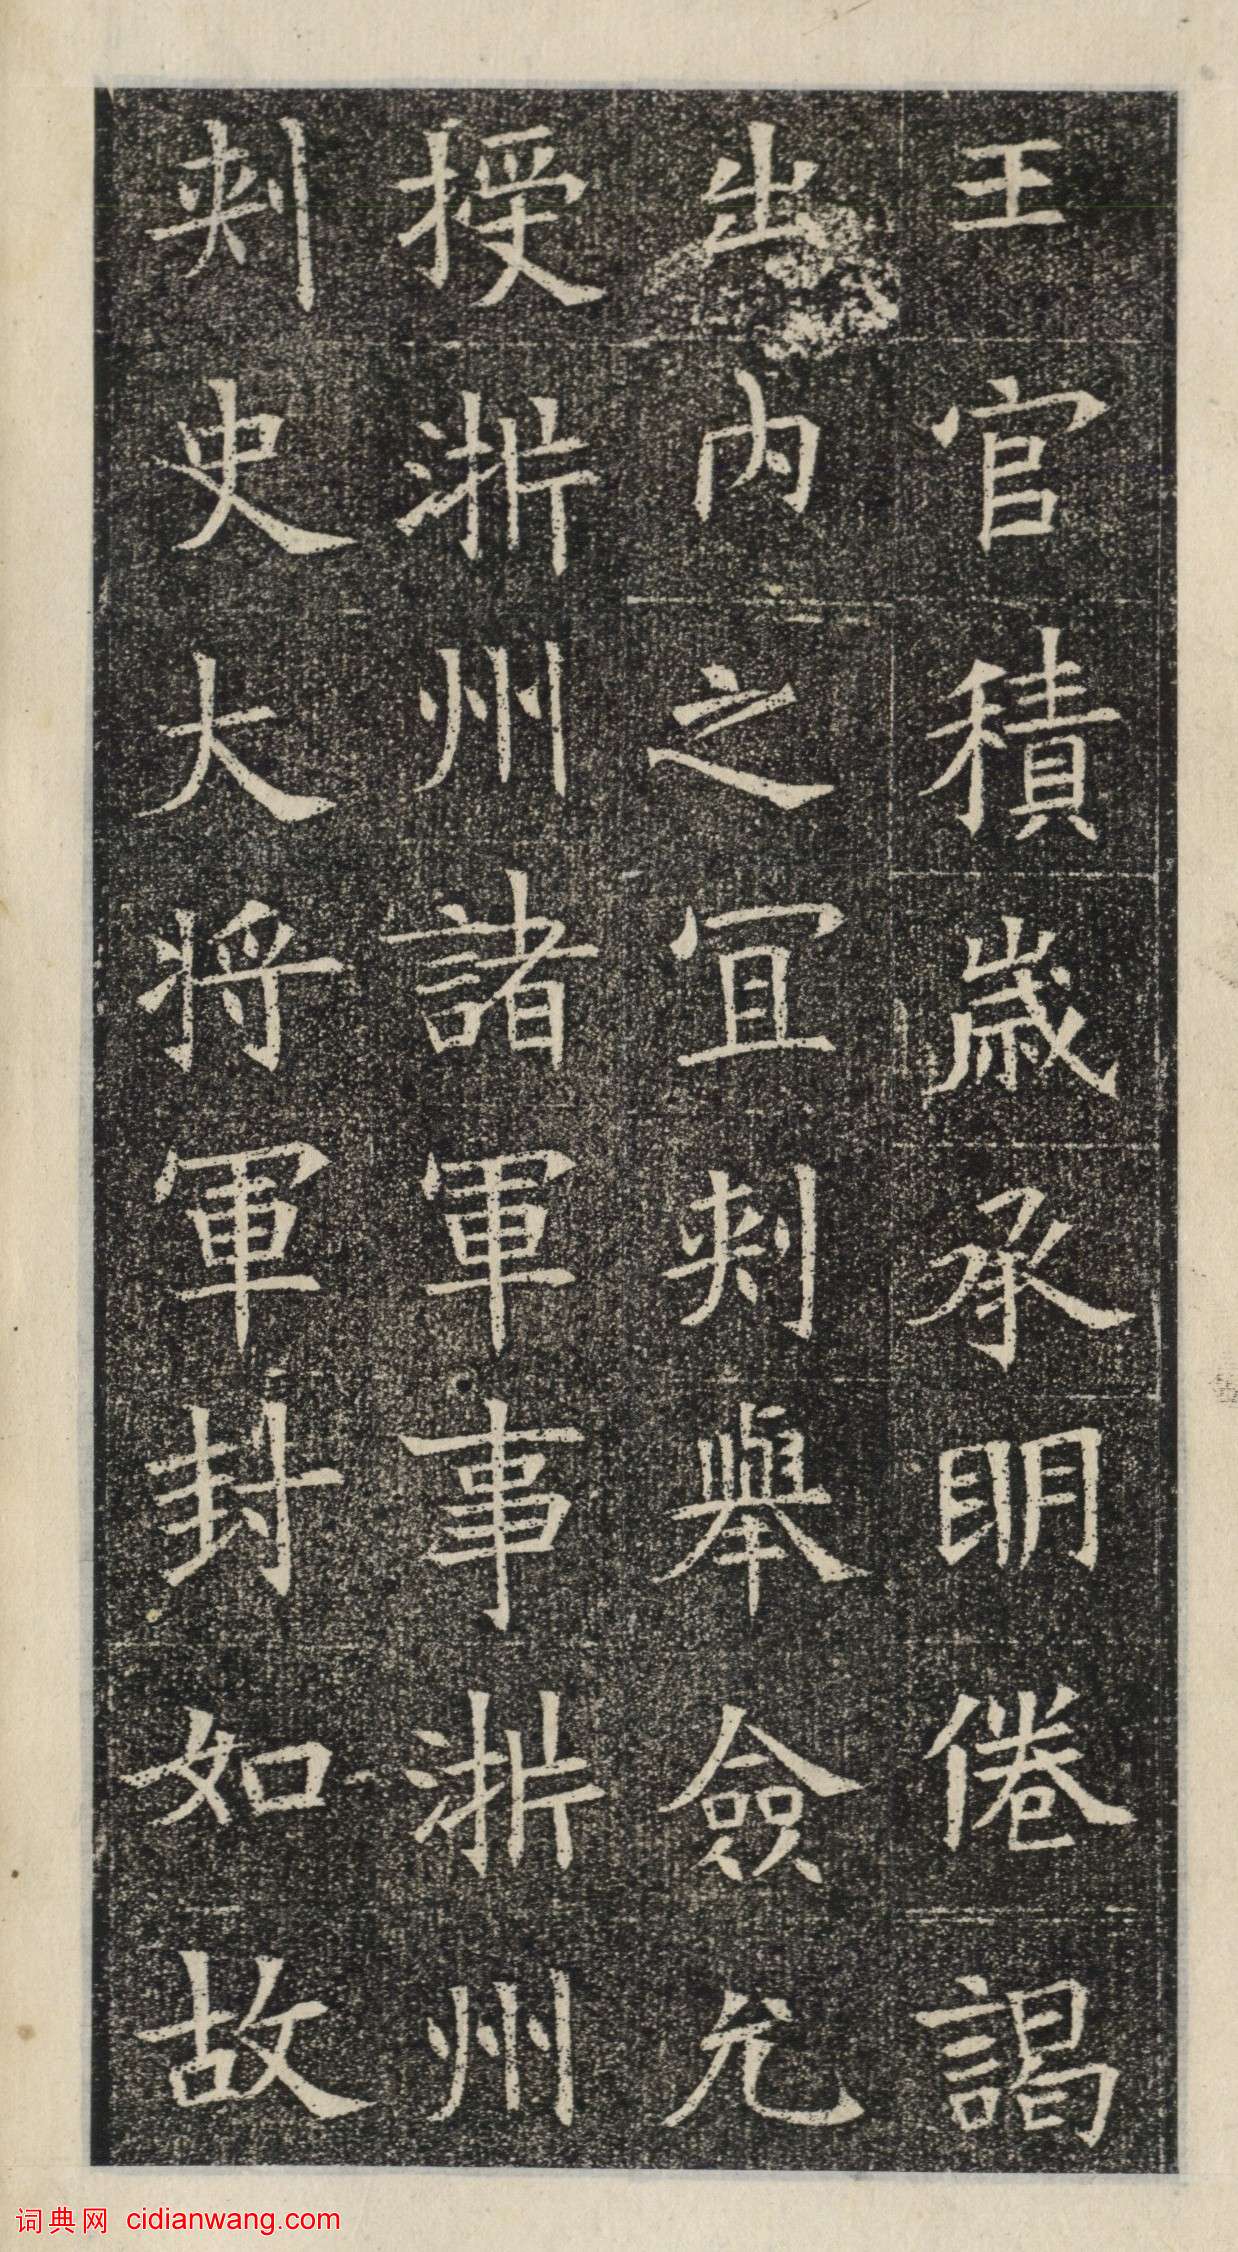 王官積歲承明倦謁
出內之宜刺舉僉允
授浙州諸軍事浙州
刺史大将軍封如故
词典网 cidianwang.com